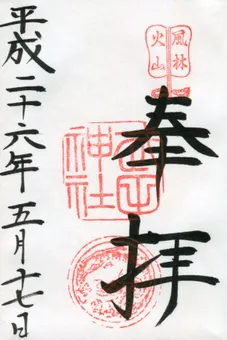 風林
火山
奉拝
神社
平成二十六年五月十七日